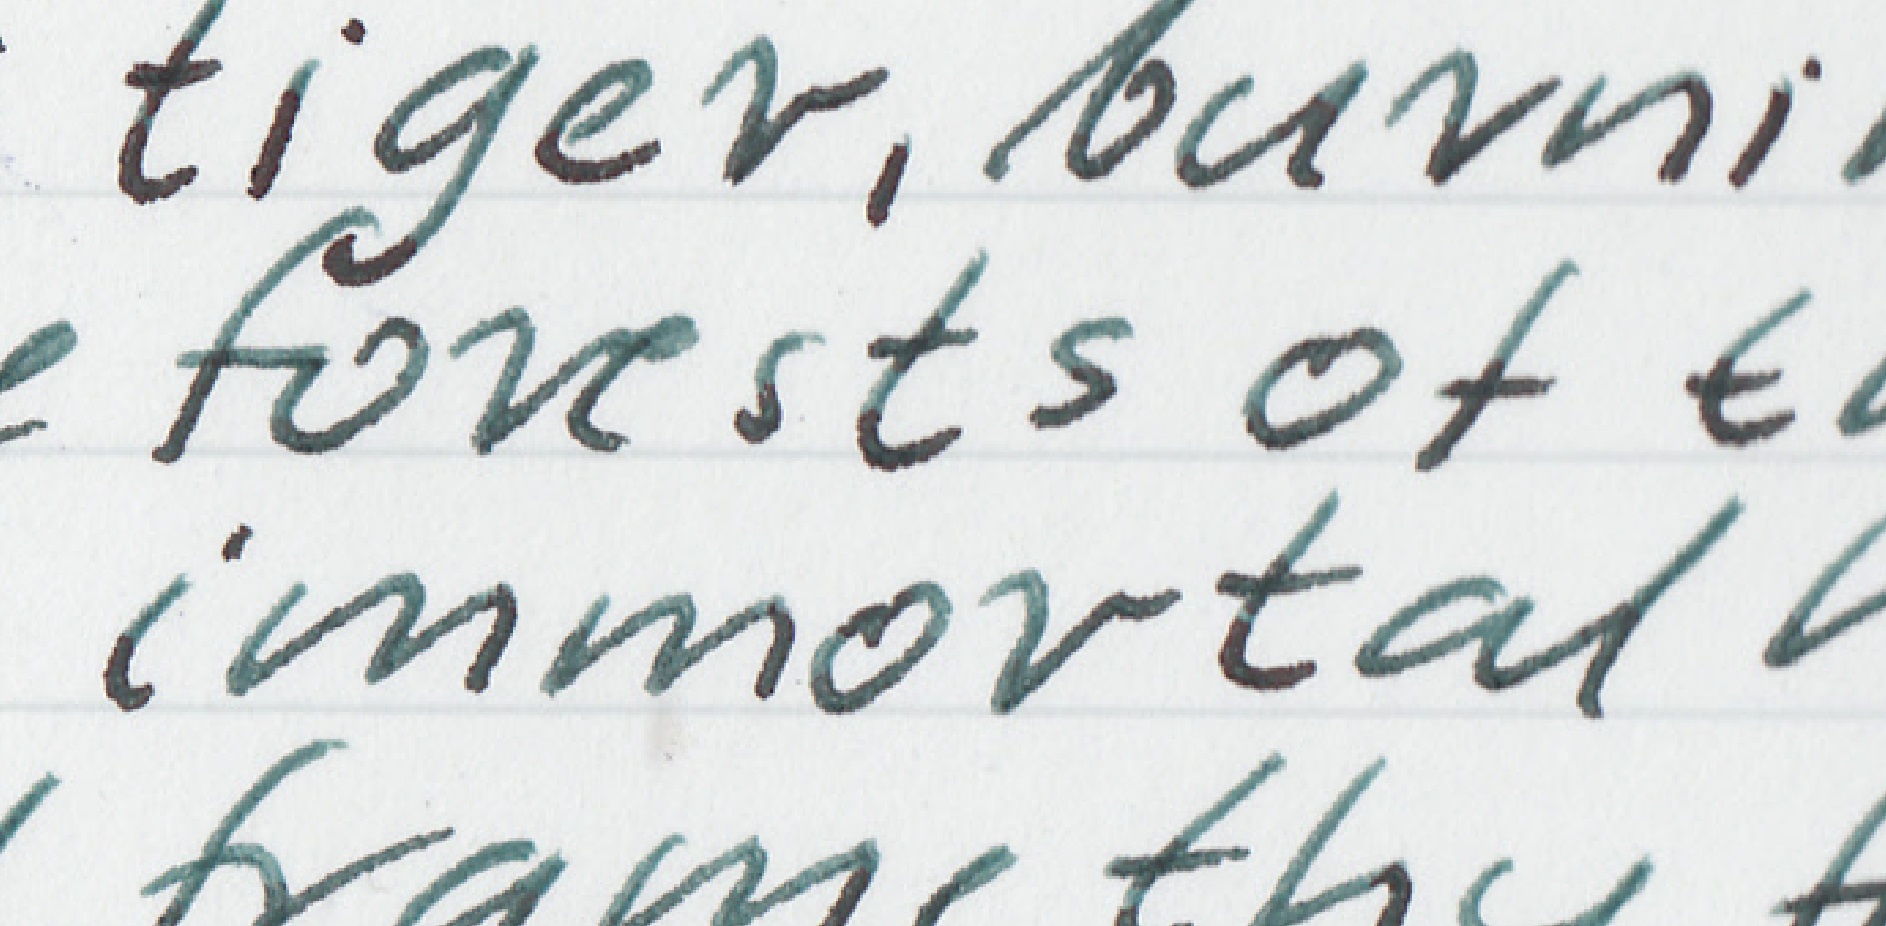 tiger, burni
forests of th
immortal h
frame thy f